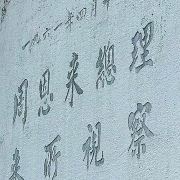 一九六一年四月
周恩来總理
来所視察